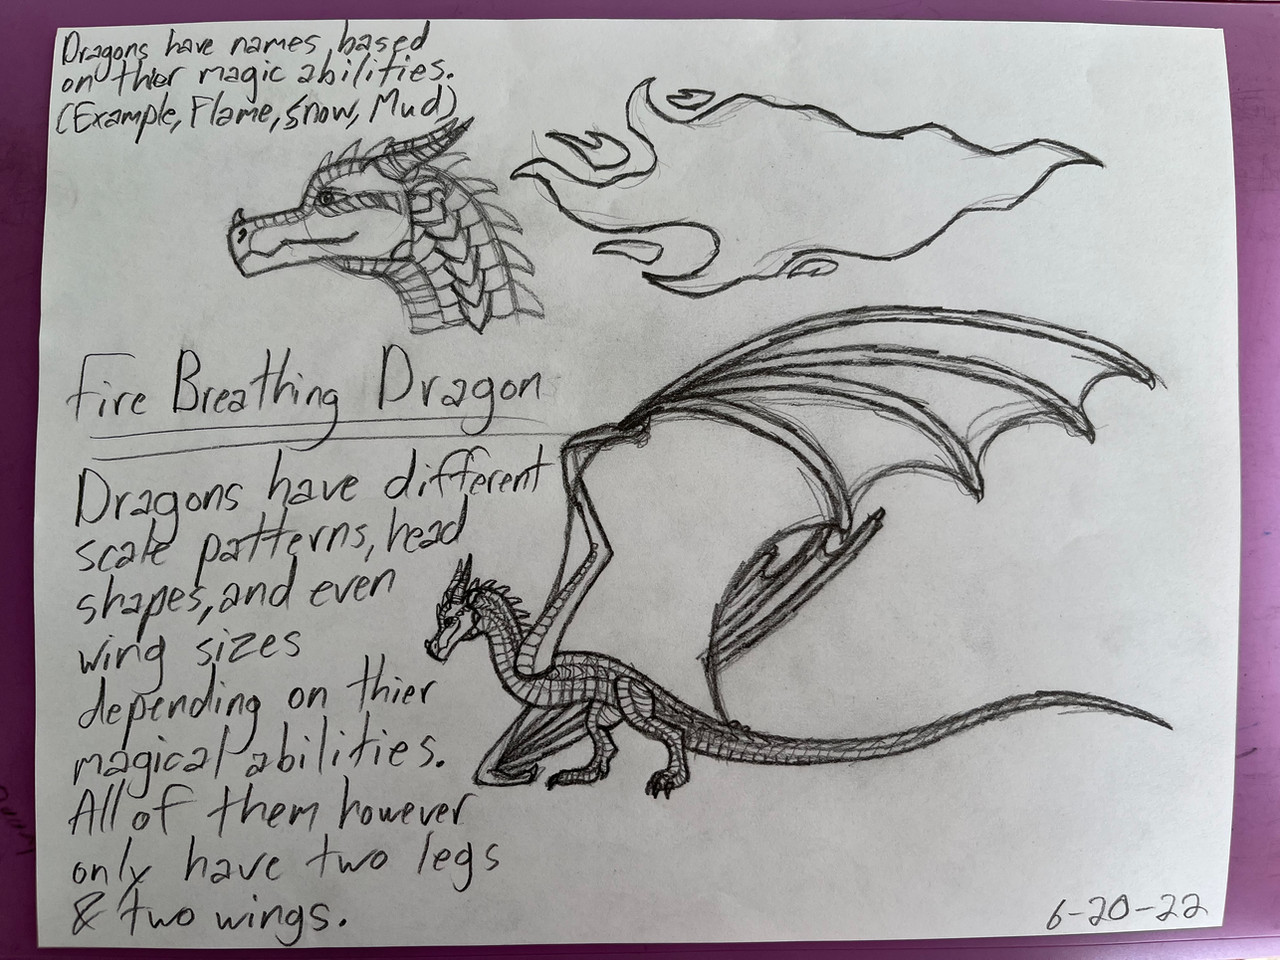 Dragons have names based
on thier magic abilities.
(Example, Flame, Snow, Mud)
Fire Breathing Dragon
Dragons have different
scale patterns, head
shapes, and even
wing sizes
depending on thier
magical abilities.
All of them however
only have two legs
& two wings.
6-20-22